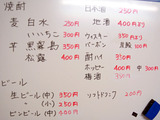 焼酎
麦 白水 250円
いいちこ 300円
芋 黒霧島 350円
松露 400円
ビール
生ビール(中) 350円
〃 (小) 250円
ビンビール(中) 600円
日本酒 350円
地酒 400円より
ウィスキー 350円より
バーボン
酎ハイ 350円
ホッピー 400円 中 300円
梅酒 350円
ソフトドリンク 200円